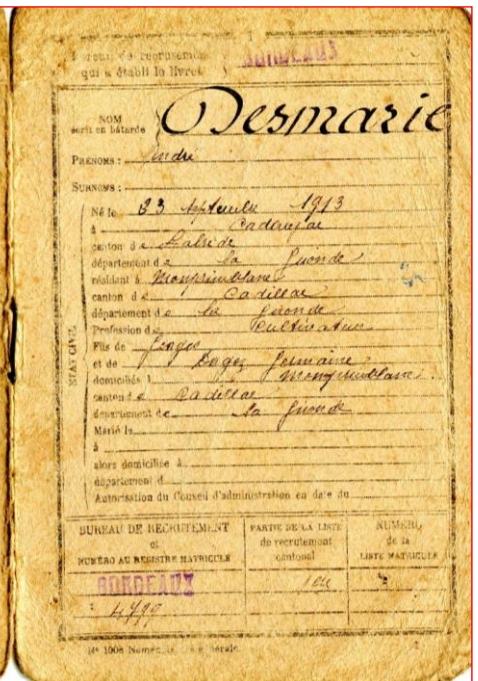 1
Bureau de recrutement
qui a établi le livret
BORDEAUX
NOM
écrit en bâtarde
Desmarie
PRÉNOMS : André
SURNOMS :
ÉTAT CIVIL
Né le 23 Septembre 1913
à Cadaujac
canton de Labrède
département de la Gironde
résidant à Monprimblanc
canton de Cadillac
département de la Gironde
Profession de Cultivateur
Fils de
et de Germaine
domiciliés à Monprimblanc
canton de Cadillac
département de la Gironde
Marié le
à
alors domiciliée à
département d
Autorisation du Conseil d'administration en date du
BUREAU DE RECRUTEMENT
et
NUMÉRO AU REGISTRE MATRICULE
PARTIE DE LA LISTE
de recrutement
cantonal
NUMÉRO
de la
LISTE MATRICULE
BORDEAUX
1ère
N° 1008 Nomenclature générale.